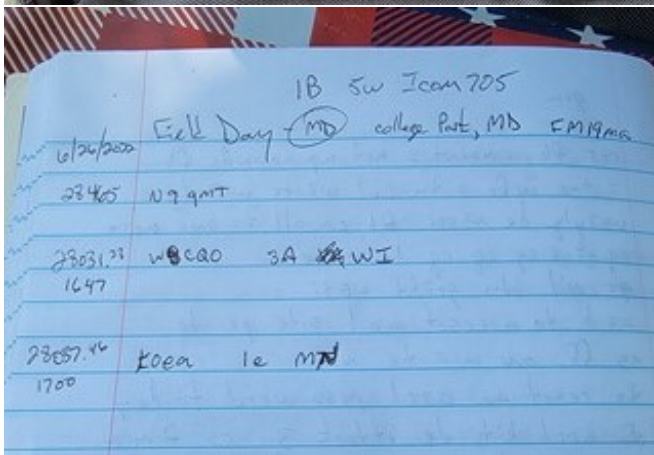 1B 5w Icom 705
Field Day - MD college Park, MD FM19ma
6/26/2022
28465 N9 9MT
28031.23 W8CQO 3A WI
1647
28037.46 K0ea 1e MN
1700